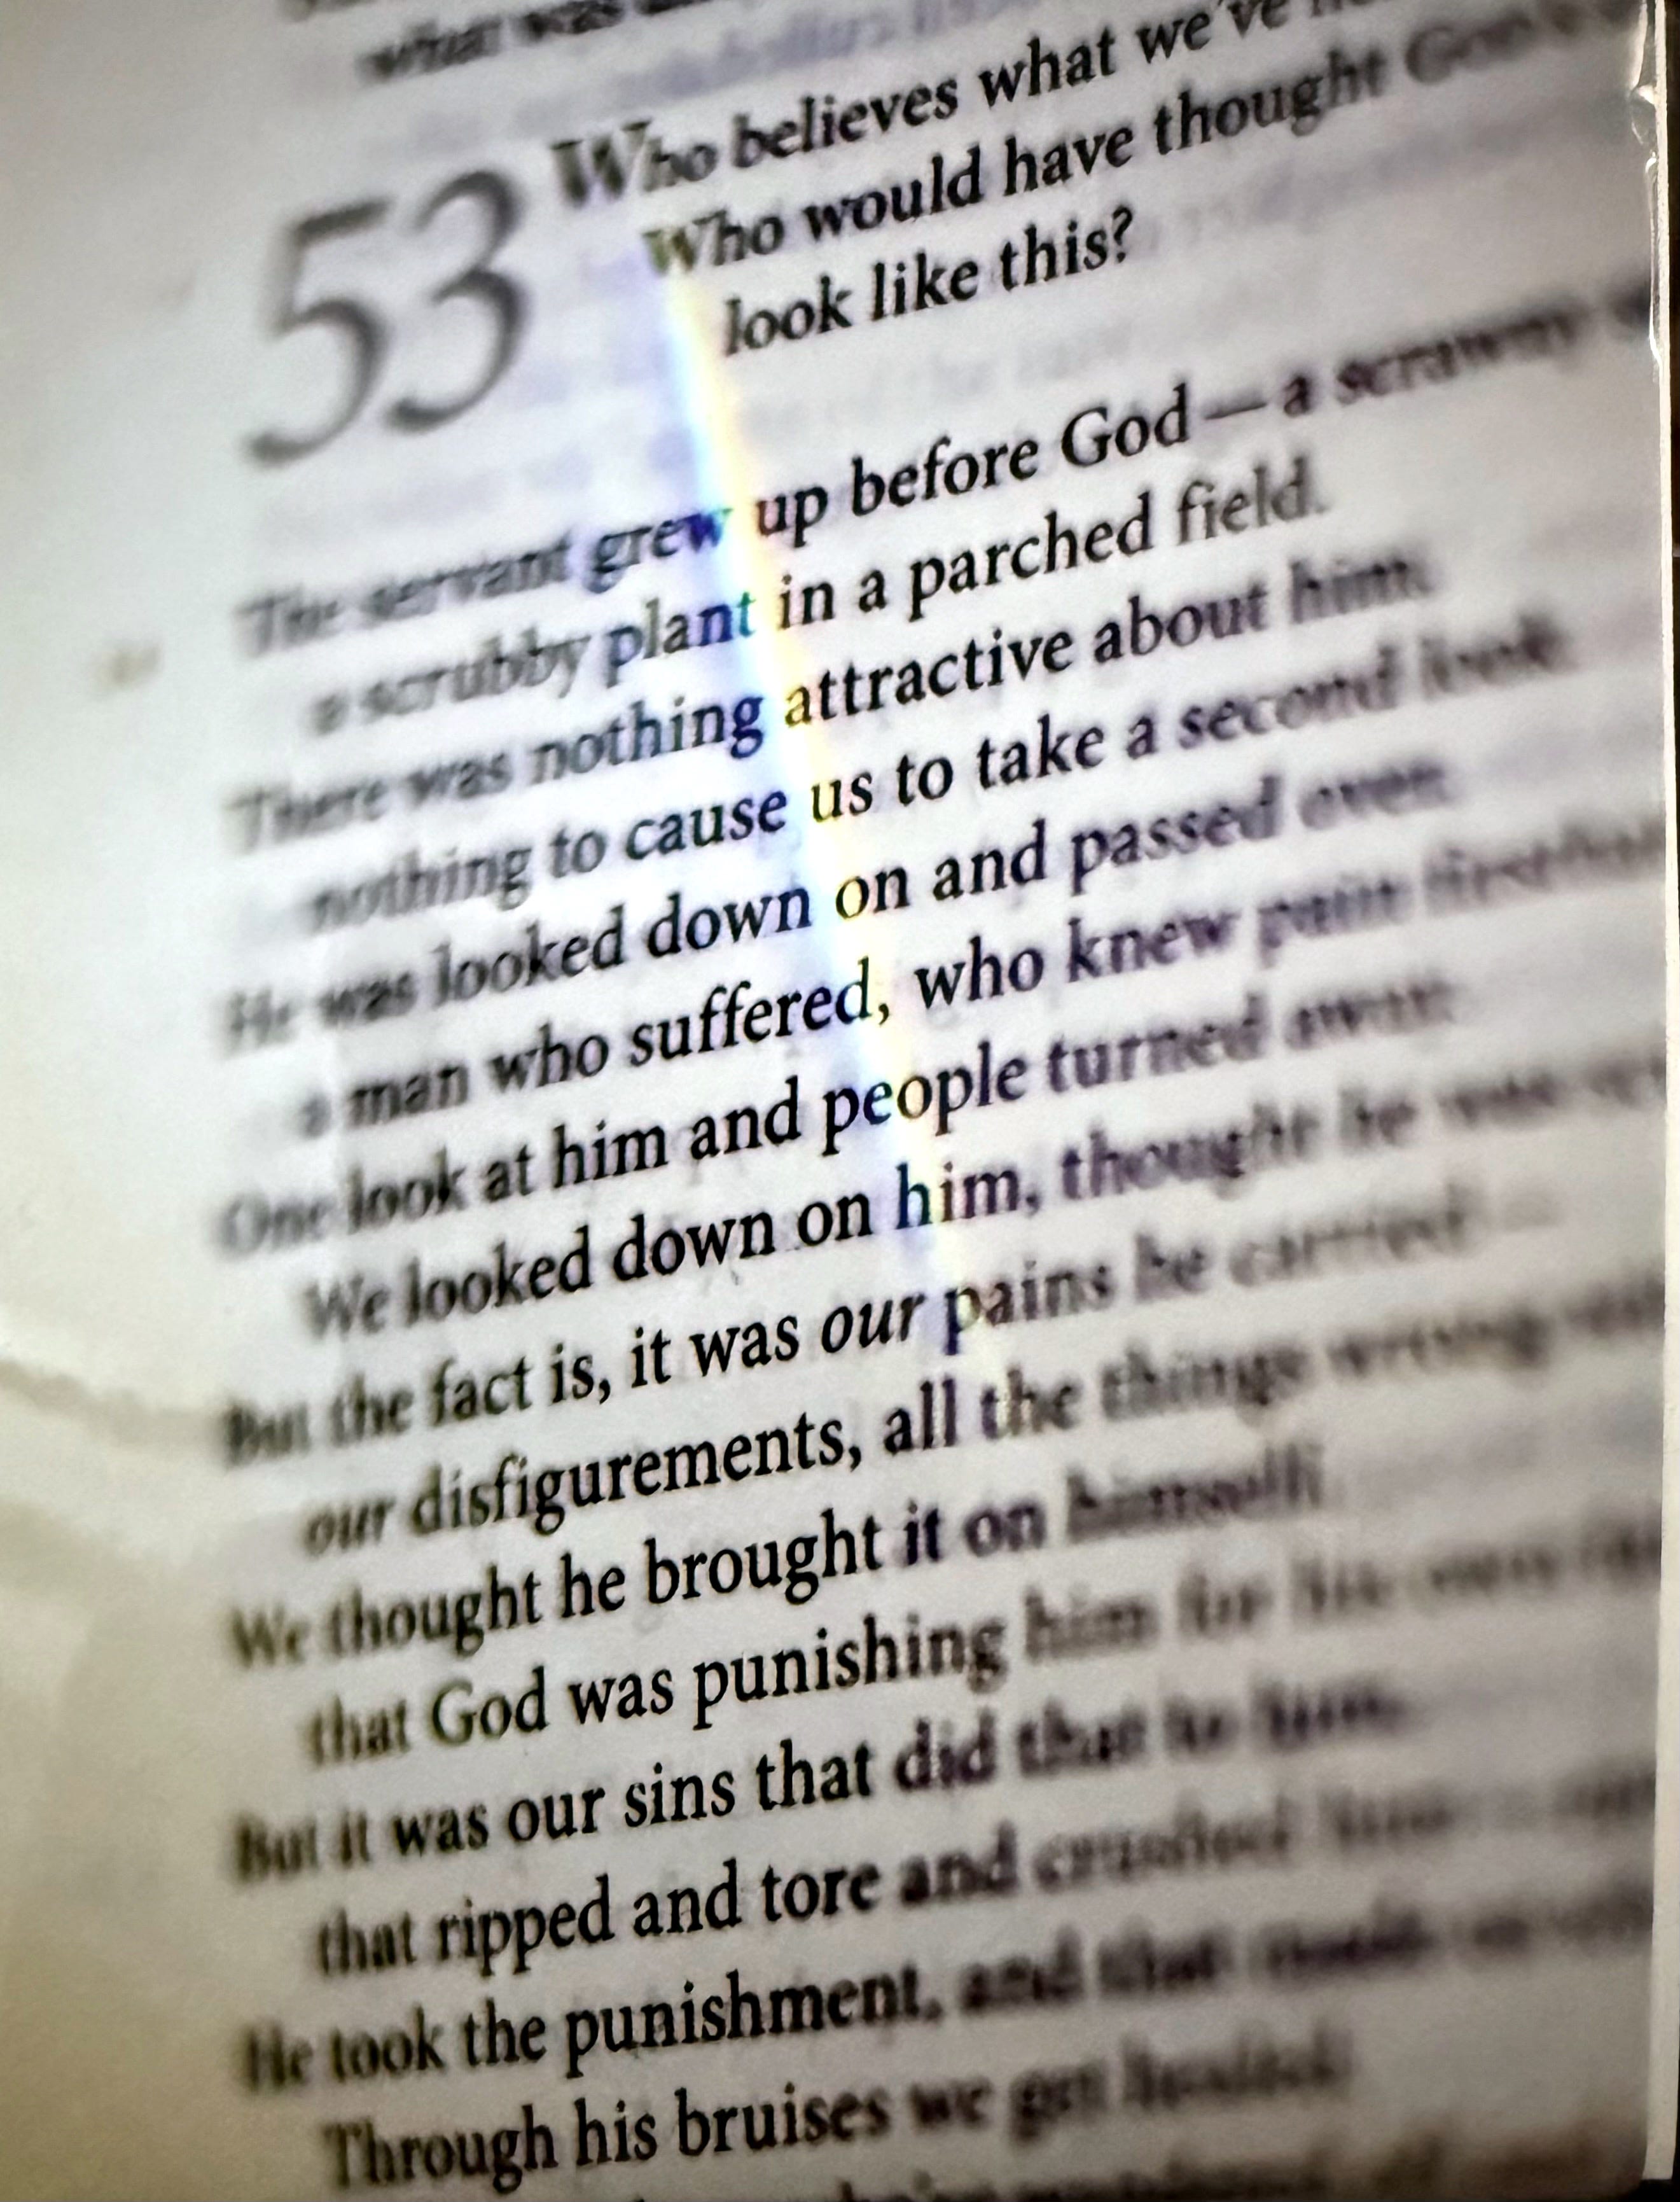 what was
53
Who believes what we've
Who would have thought God's
look like this?
The servant grew up before God—a scrawny
a scrubby plant in a parched field.
There was nothing attractive about him,
nothing to cause us to take a second look.
He was looked down on and passed over,
a man who suffered, who knew pain firsthand
One look at him and people turned away.
We looked down on him, thought he was
But the fact is, it was our pains he carried—
our disfigurements, all the things wrong with
We thought he brought it on himself,
that God was punishing him for his own
But it was our sins that did that to him,
that ripped and tore and crushed him—our
He took the punishment, and that made us
Through his bruises we get healed.